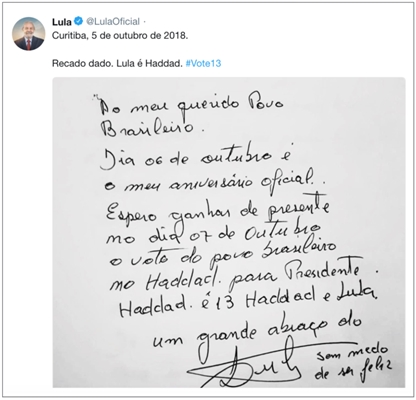 Lula @LulaOficial ·
Curitiba, 5 de outubro de 2018.
Recado dado. Lula é Haddad. #Vote13
Ao meu querido Povo
Brasileiro.
Dia 06 de outubro é
o meu aniversário oficial.
Espero ganhar de presente
no dia 07 de Outubro
o voto do povo brasileiro
no Haddad para Presidente.
Haddad é 13 Haddad e Lula
um grande abraço do
Lula sem medo
de ser feliz